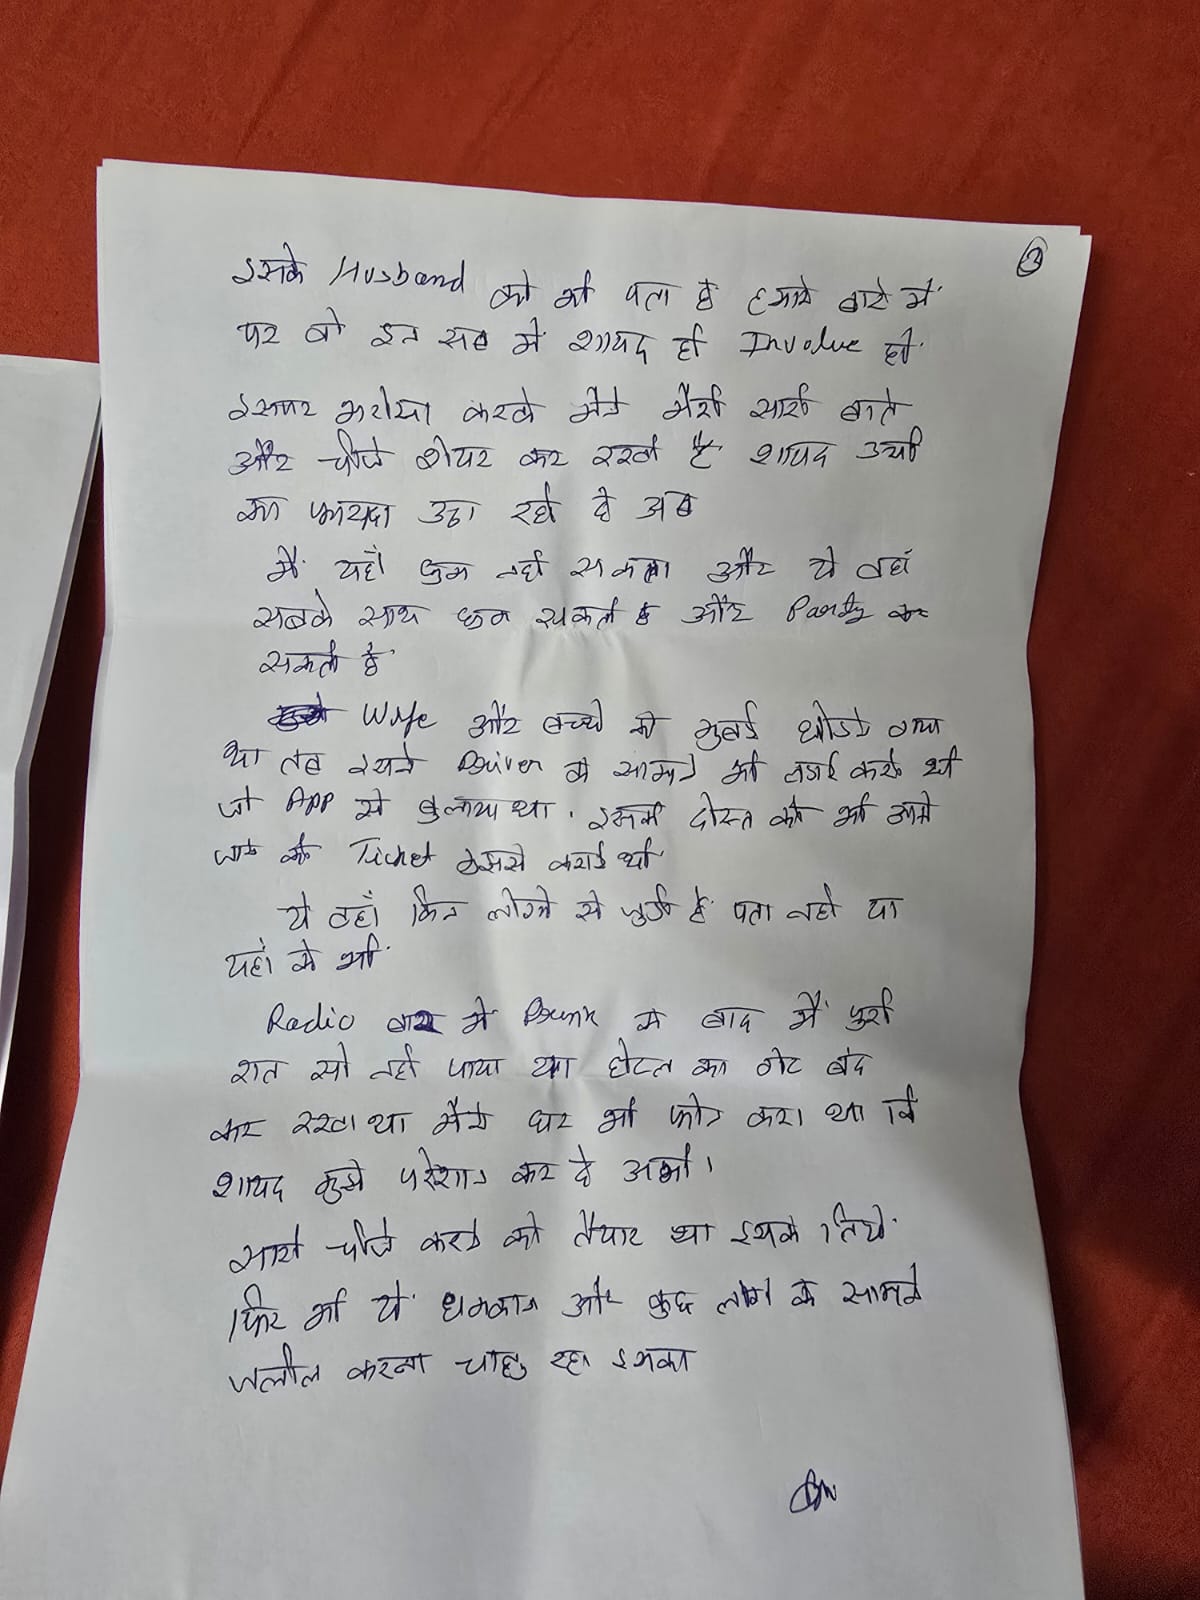 3
इसके Husband को भी पता है हमारे बारे में
पर वो इन सब में शायद ही Involve हो
इसपर भरोसा करके मैने मेरी सारी बाते
और चीजे शेयर कर रखी है शायद उसी
का फायदा उठा रही है अब
मैं यहाँ घुम नही सकता और ये वहां
सबके साथ घुम सकती है और Party कर
सकती है
Wife और बच्चे को मुंबई छोडने गया
था तब इसने Driver के सामने भी लडाई करी थी
जो App से बुलाया था। इसकी दोस्त को भी आने
जाने की Ticket इससे कराई थी
ये वहाँ किन लोगो से जुडी है पता नही या
यहां से भी
Radio बार में Drunk के बाद मैं पुरी
रात सो नही पाया था होटल का गेट बंद
कर रखा था मैने घर भी फोन करा था कि
शायद मुझे परेशान कर दे अभी।
सारी चीजे करने को तैयार था इसके लिये
फिर भी ये धमकाना और कुछ लोगो के सामने
जलील करना चाह रहा इसका